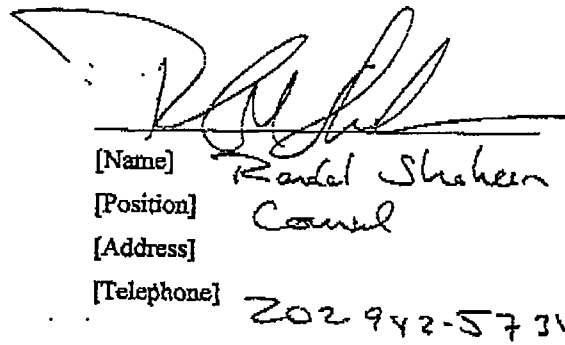 [Name] Randal Shaheen
[Position] Counsel
[Address]
[Telephone] 202 942-573